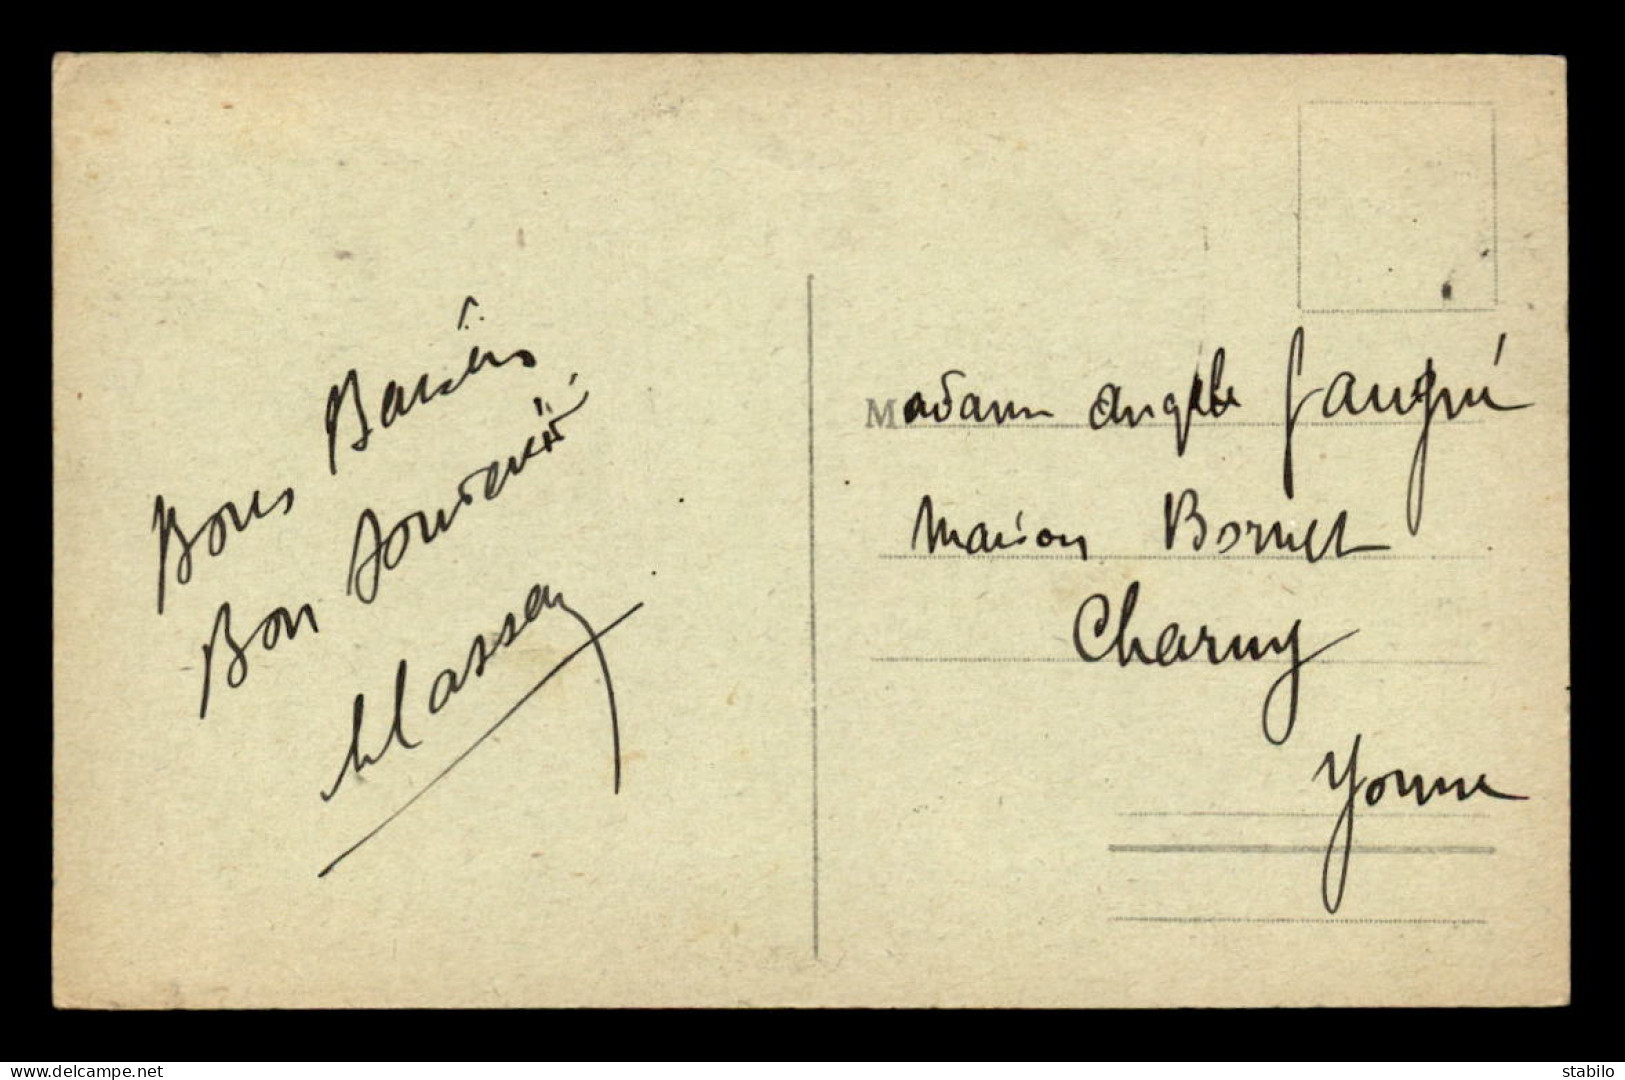 Bons Baisers
Bon Souvenir
Masson
Madame Angele
Maison Bornet
Charny
Yonne
delcampe.net
stabilo